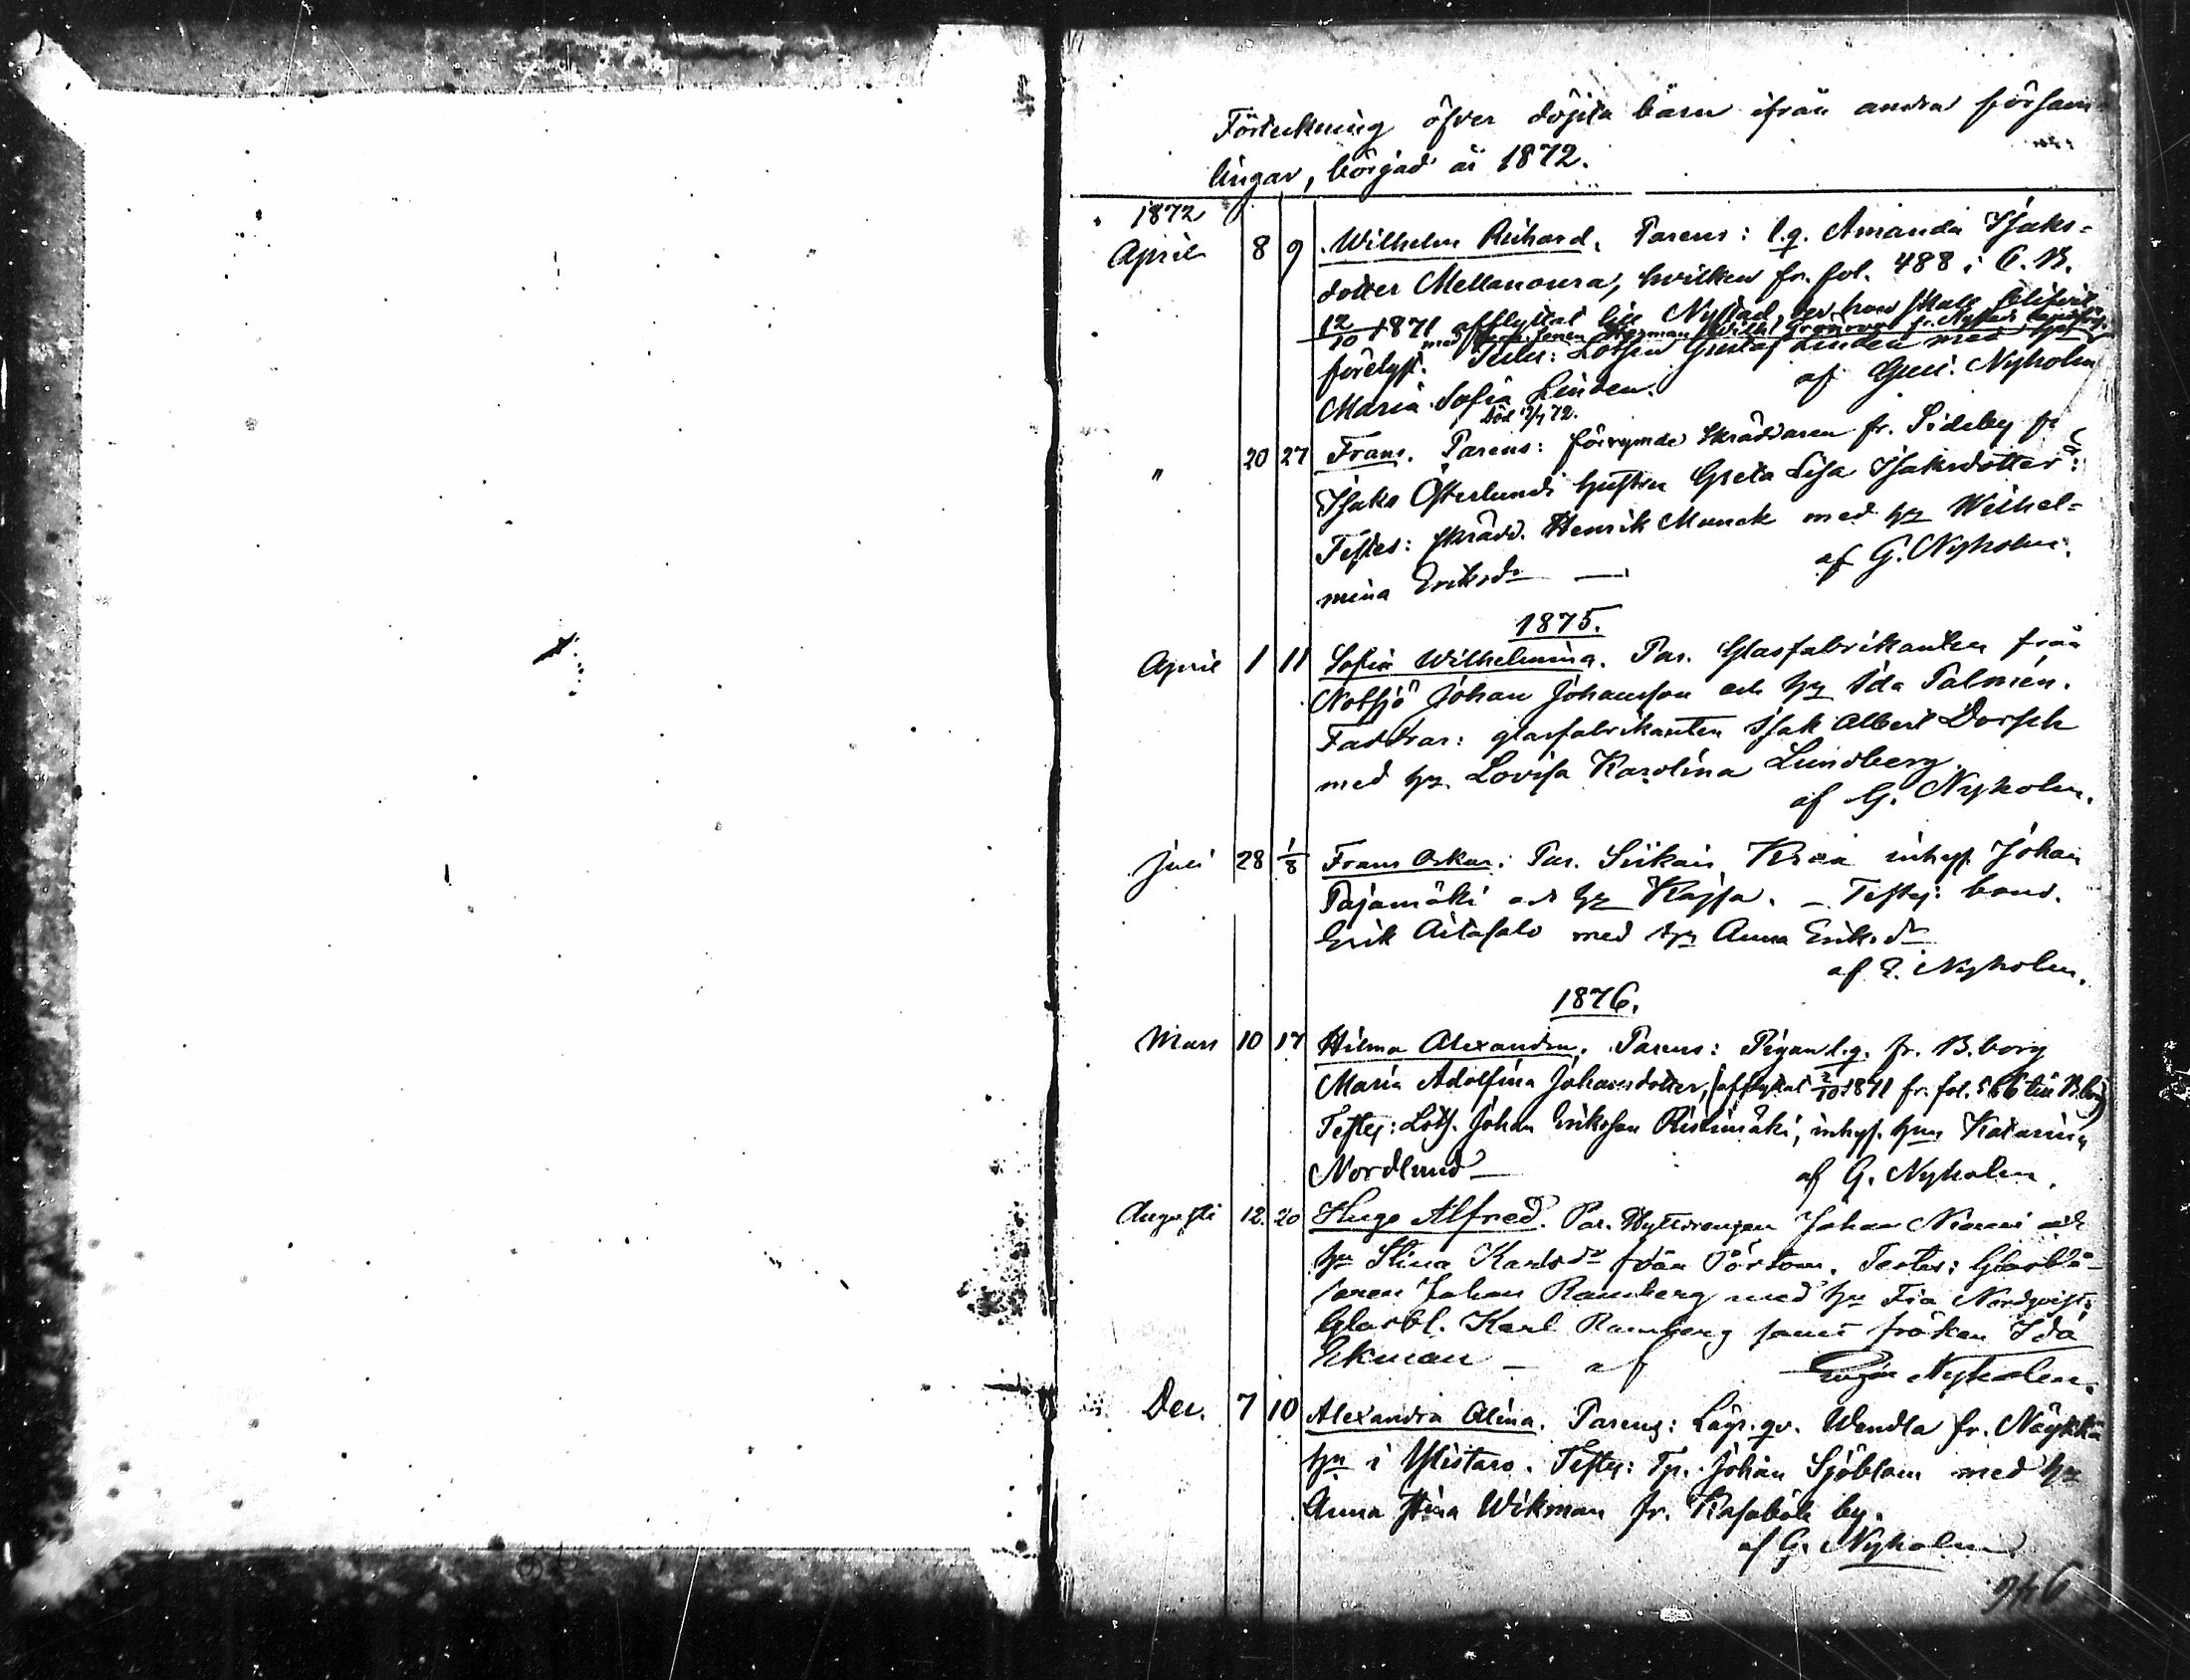 Förteckning öfver döpta barn ifrån andra försam-
lingar, börjad år 1872.
1872
April 8 9 Wilhelm Richard. Parens: l.q. Amanda Isaks-
dotter Mellanoura, hvilken fr. fol. 488 i C. B.
12/10 1871 afflyttat till Nystad, der hon skall blifvit
med fr. Nystad
förelyst. Testes: Lotsen Gustaf Linden med
Maria Sofia Linden. af Gust. Nyholm
Död 72.
" 20 27 Frans. Parens: förrymde skräddaren fr. Sideby
Isaks Österlunds hustru Greta Lisa Isaksdotter.
Testes: skrädd. Henrik Munck med hu Wilhel-
mina Eriksdr — af G. Nyholm.
1875.
April 1 11 Sofia Wilhelmina. Par. Glasfabrikanten från
Notsjö Johan Johansson och hu Ida Palmén.
Faddrar: glasfabrikanten Isak Albert Dorsch
med hu Lovisa Karolina Lundberg.
af G. Nyholm.
Juli 28 1/8 Frans Oskar. Par. inhys. Johan
Pajamäki och hu Kajsa. — Testes: bond.
Erik Aitasalo med hu Anna Eriksdr
af G. Nyholm.
1876.
Mars 10 17 Hilma Alexandra. Parens: Pigan l.q. fr. B.borg
Maria Adolfina Johansdotter, (afflyttat 2/10 1871 fr. fol. 566 till B.borg)
Testes: Lots. Johan Eriksson Ristimäki, inhys. hu Katarina
Nordlund — af G. Nyholm.
Augusti 12. 20 Hugo Alfred. Par. Hyttdrengen Johan Niemi och
hu Stina Karlsdr från Pörtom. Testes: Glasblå-
saren Johan Ramberg med hu Fia Nordqvist,
Glasbl. Karl Ramberg samt fröken Ida
Ekman — af Nyholm.
Dec. 7 10 Alexandra Alina. Parens: Lägr.qv. Wendla fr. Näykki
hn i Ylistaro. Testes: Tp. Johan Sjöblom med hu
Anna Stina Wikman fr. Kasaböle by.
af G. Nyholm
946